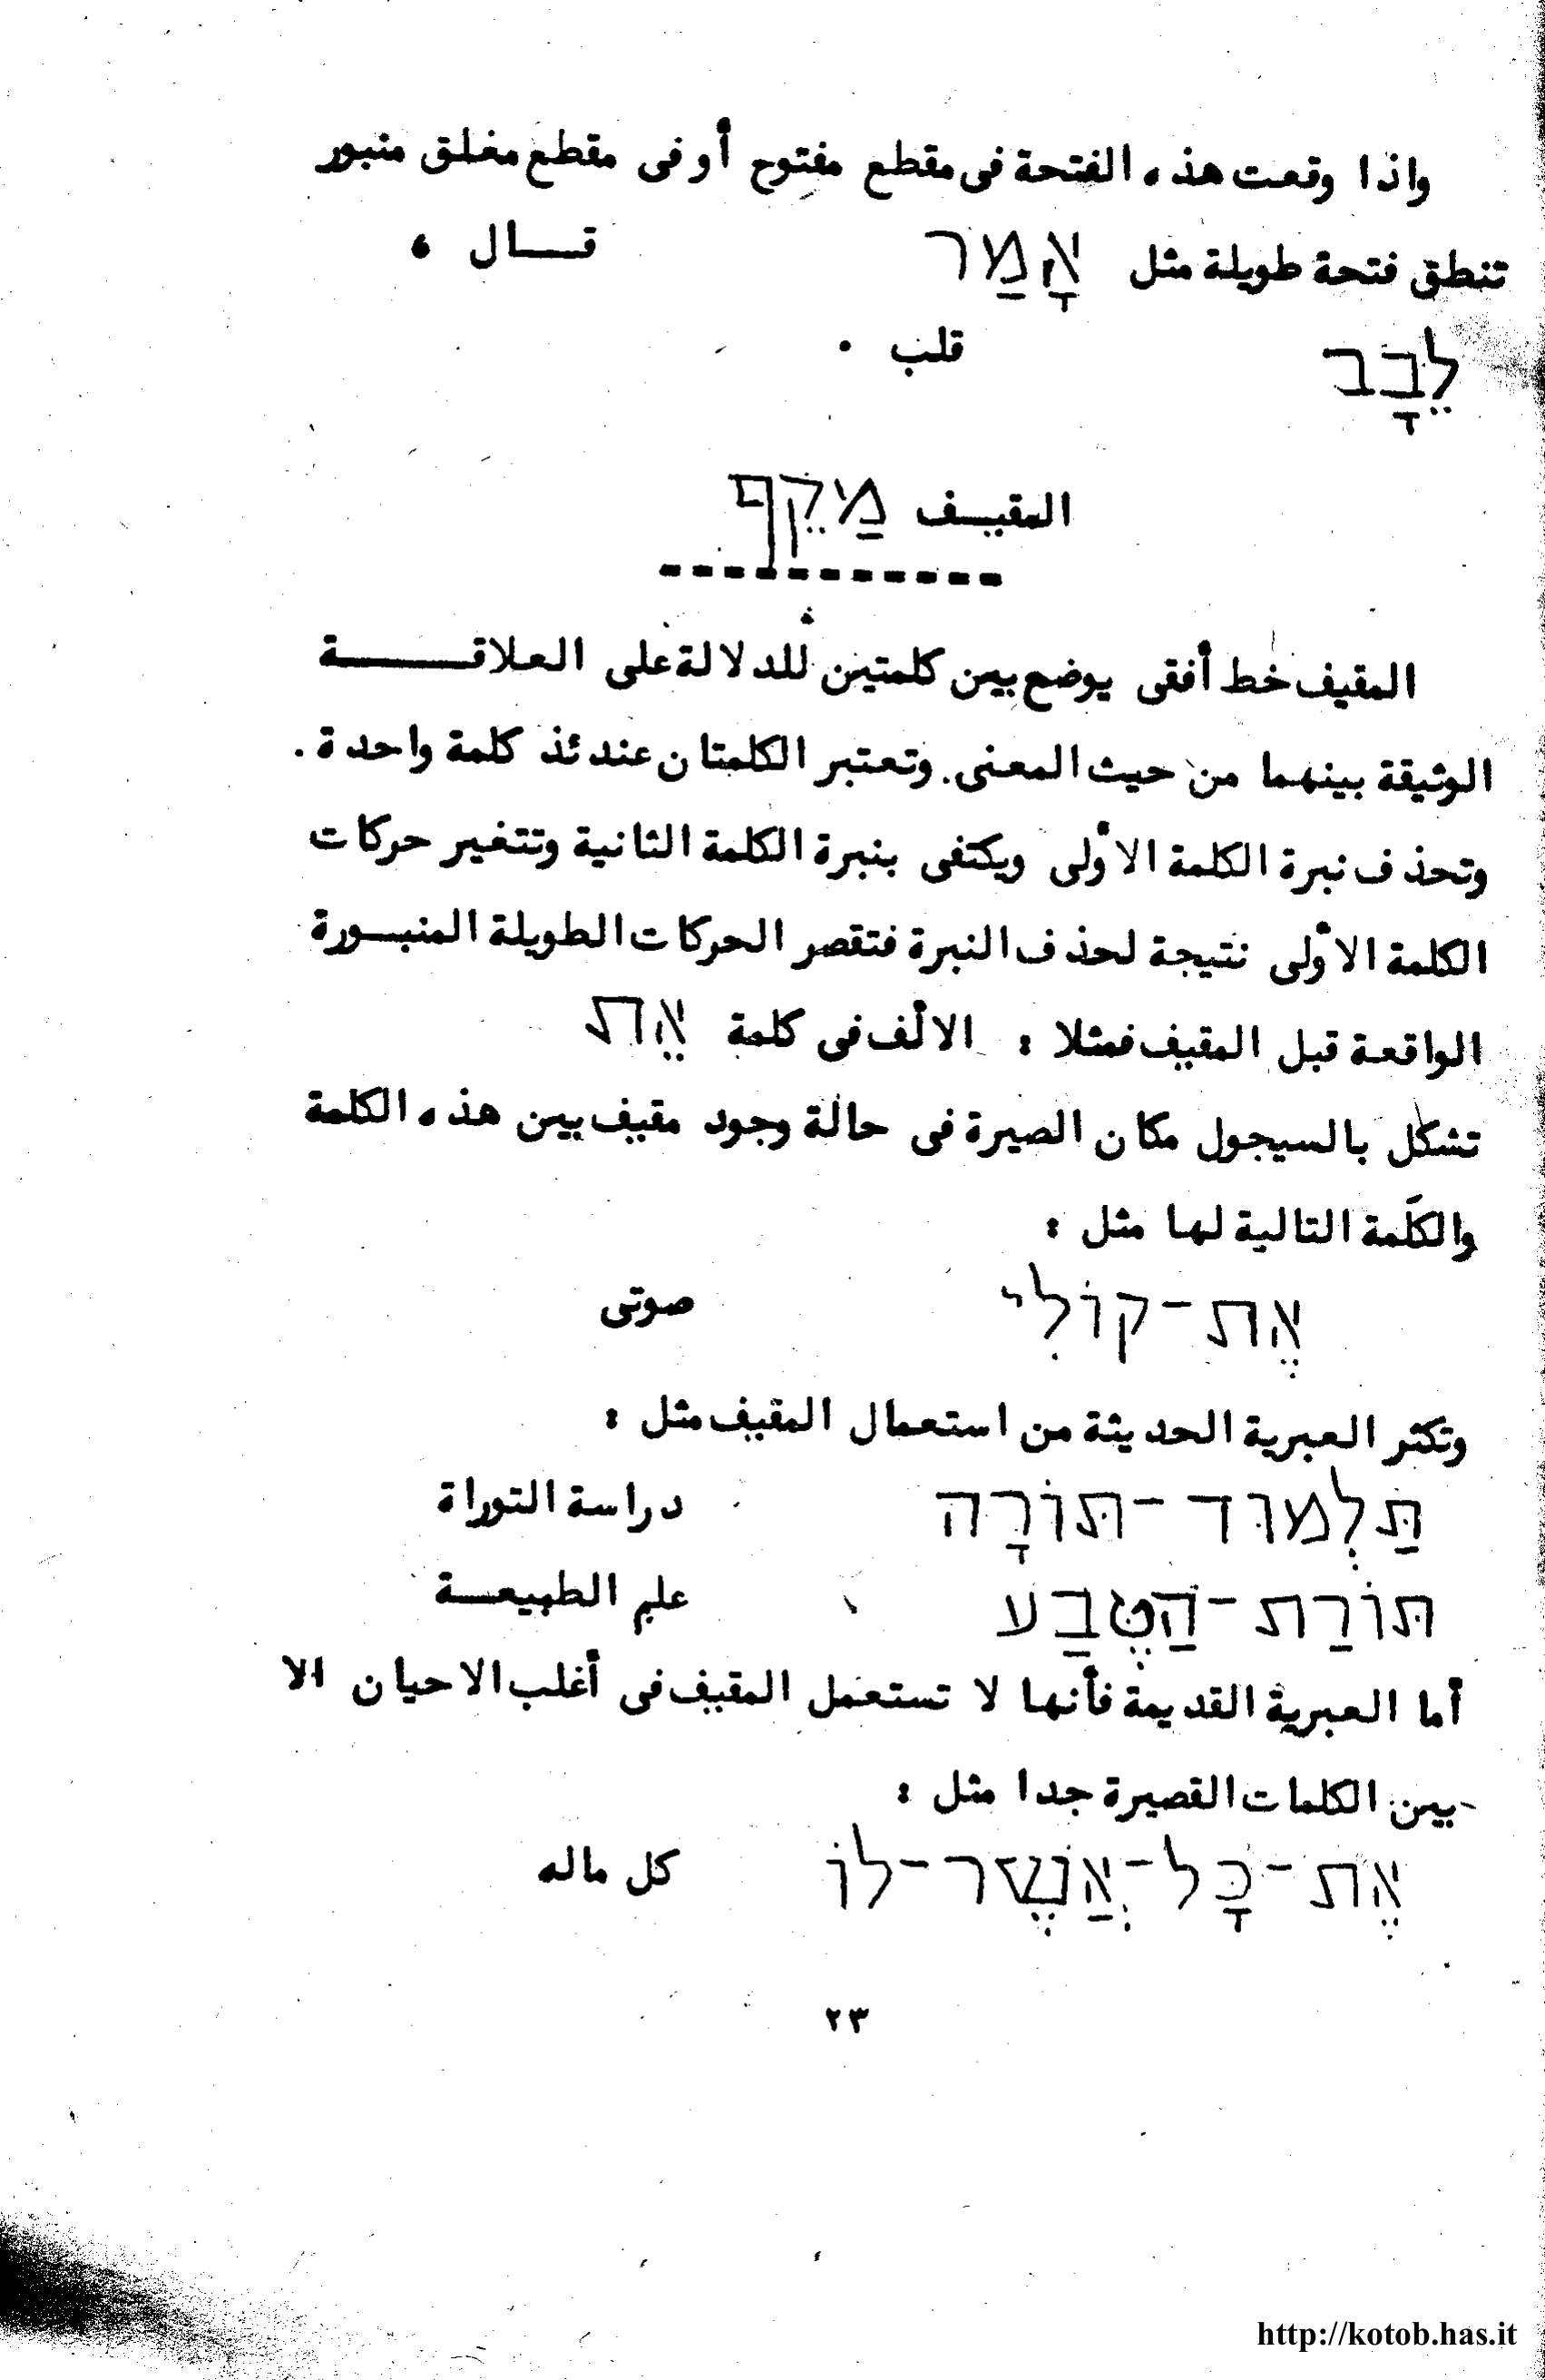 واذا وقعت هذه الفتحة فى مقطع مفتوح أو فى مقطع مغلق منبور
تنطق فتحة طويلة مثل אָמַר قـــال ،
לֵבָב قلب .
المقيـف מַקֵף
المقيف خط أفقى يوضع بين كلمتين للدلالة على العلاقــــــة
الوثيقة بينهما من حيث المعنى . وتعتبر الكلمتان عندئذ كلمة واحدة .
وتحذف نبرة الكلمة الأولى ويكتفى بنبرة الكلمة الثانية وتتغير حركات
الكلمة الأولى نتيجة لحذف النبرة فتقصر الحركات الطويلة المنبـورة
الواقعة قبل المقيف فمثلا : الألف فى كلمة אֵת
تشكل بالسيجول مكان الصيرة فى حالة وجود مقيف بين هذه الكلمة
والكلمة التالية لها مثل :
אֶת-קוֹלִי صوتى
وتكثر العبرية الحديثة من استعمال المقيف مثل :
תַּלְמוּד-תּוֹרָה دراسة التوراة
תּוֹרַת-הַטֶּבַע علم الطبيعــة
أما العبرية القديمة فأنها لا تستعمل المقيف فى أغلب الاحيان الا
بين الكلمات القصيرة جدا مثل :
אֶת-כָּל-אֲשֶׁר-לוֹ كل ماله
٢٣
http://kotob.has.it